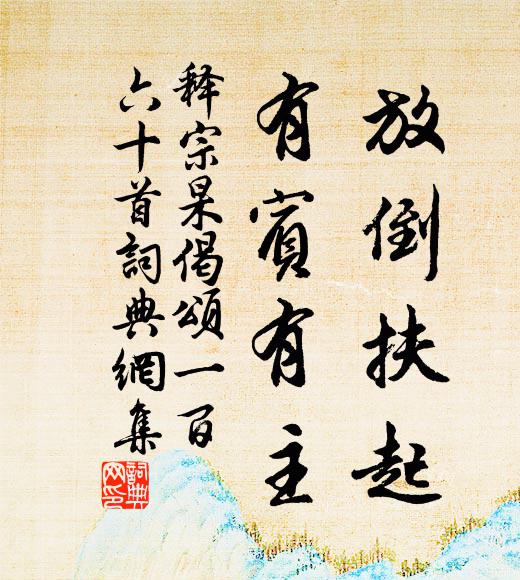 放倒扶起
有賓有主
释宗杲偈頌一百
六十首詞典網集
詞典網印